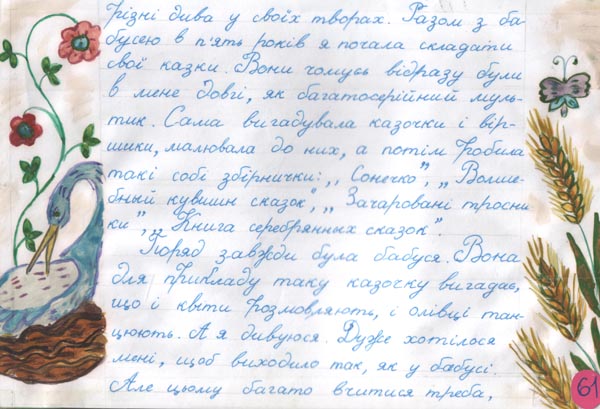 різні дива у своїх творах. Разом з ба-
бусею в п'ять років я почала складати
свої казки. Вони чомусь відразу були
в мене довгі, як багатосерійний муль-
тик. Сама вигадувала казочки і вір-
шики, малювала до них, а потім робила
такі собі збірнички: „Сонечко", „Волше-
бный кувшин сказок", „Зачаровані тросни-
ки", „Книга серебрянных сказок".
Поряд завжди була бабуся. Вона
для прикладу таку казочку вигадає,
що і квіти розмовляють, і олівці тан-
цюють. А я дивуюся. Дуже хотілося
мені, щоб виходило так, як у бабусі.
Але цьому багато вчитися треба,
61